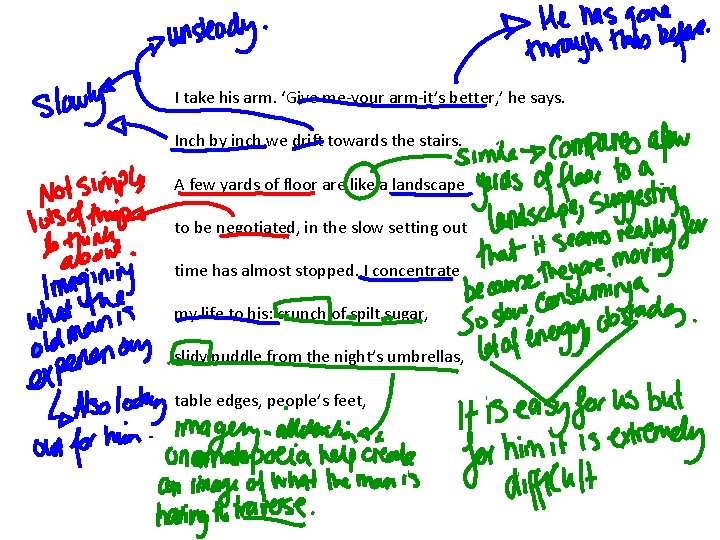 unsteady.
He has gone
through this before.
Slowly
I take his arm. ‘Give me-your arm-it’s better,’ he says.
Inch by inch we drift towards the stairs.
A few yards of floor are like a landscape
to be negotiated, in the slow setting out
time has almost stopped. I concentrate
my life to his: crunch of spilt sugar,
slidy puddle from the night’s umbrellas,
table edges, people’s feet,
Simile → Compares a few
yards of floor to a
landscape, suggesting
that it seems really far
because they are moving
so slow, consuming a
lot of energy, obstacles.
Not simple
lots of things
to think
about.
Imagining
what the
old man is
experiencing
Also looking
out for him.
Imagery - alliteration &
onomatopoeia help create
an image of what the man is
having to traverse.
It is easy for us but
for him it is extremely
difficult